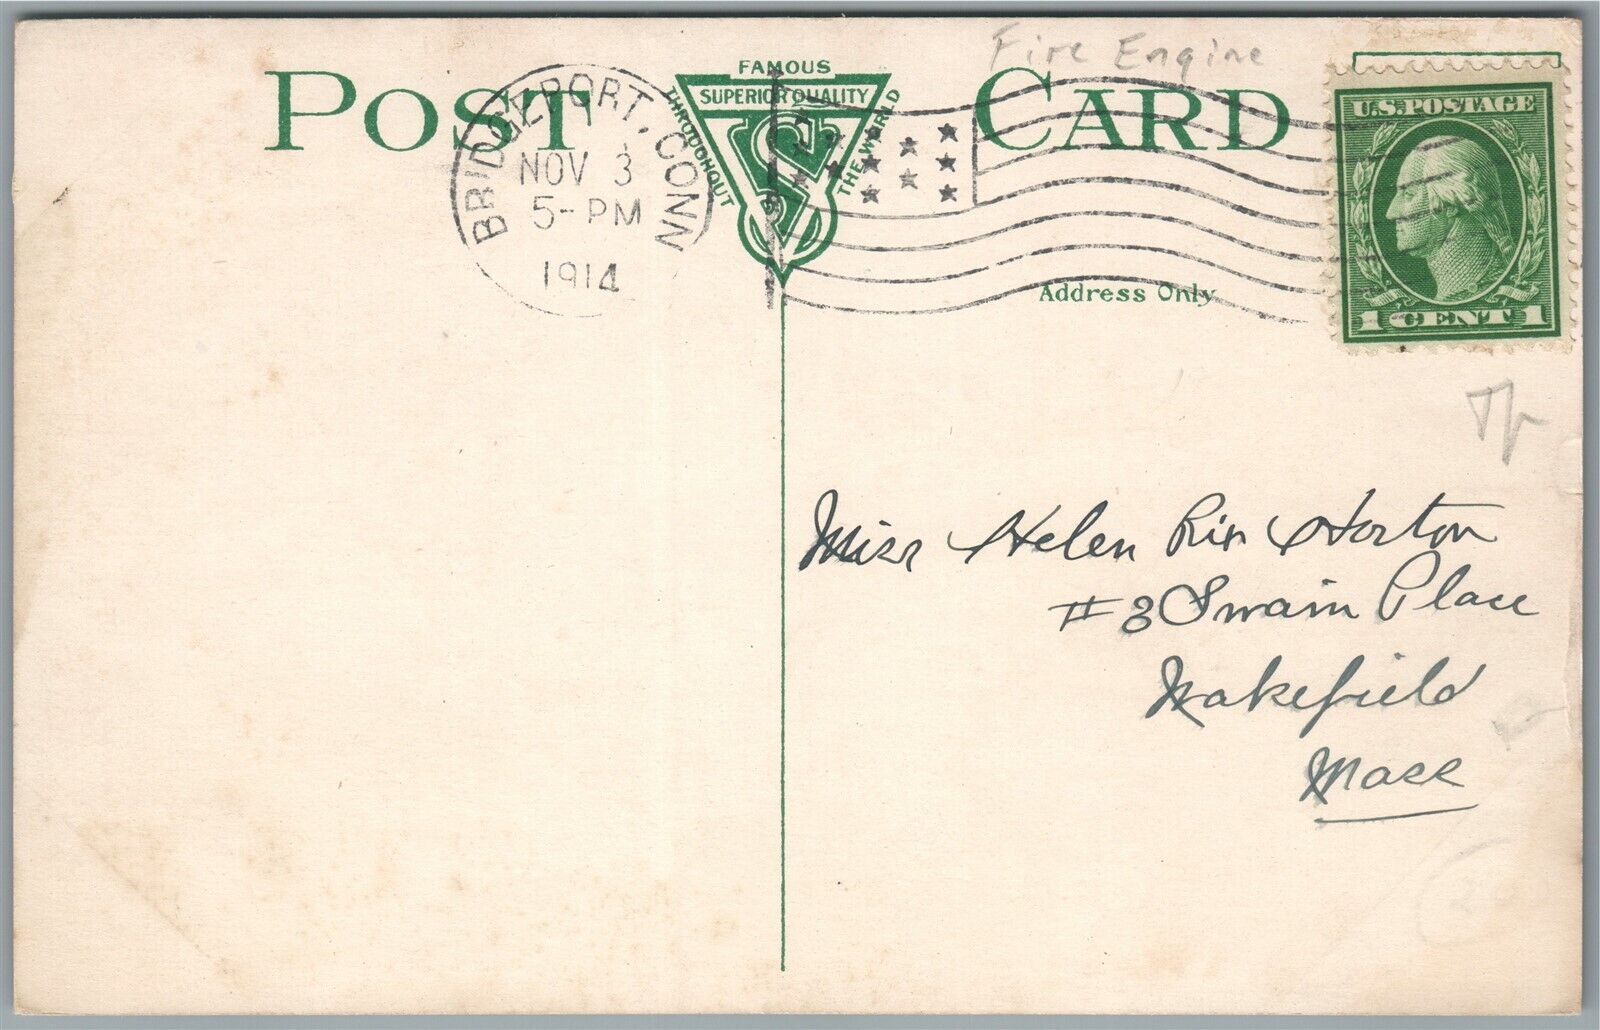 Fire Engine
POST CARD
FAMOUS
SUPERIOR QUALITY
THROUGHOUT
THE WORLD
BRIDGEPORT, CONN
NOV 3
5-PM
1914
U.S. POSTAGE
1 CENT 1
Address Only
Miss Helen Rix Horton
#3 Swain Place
Wakefield
Mass